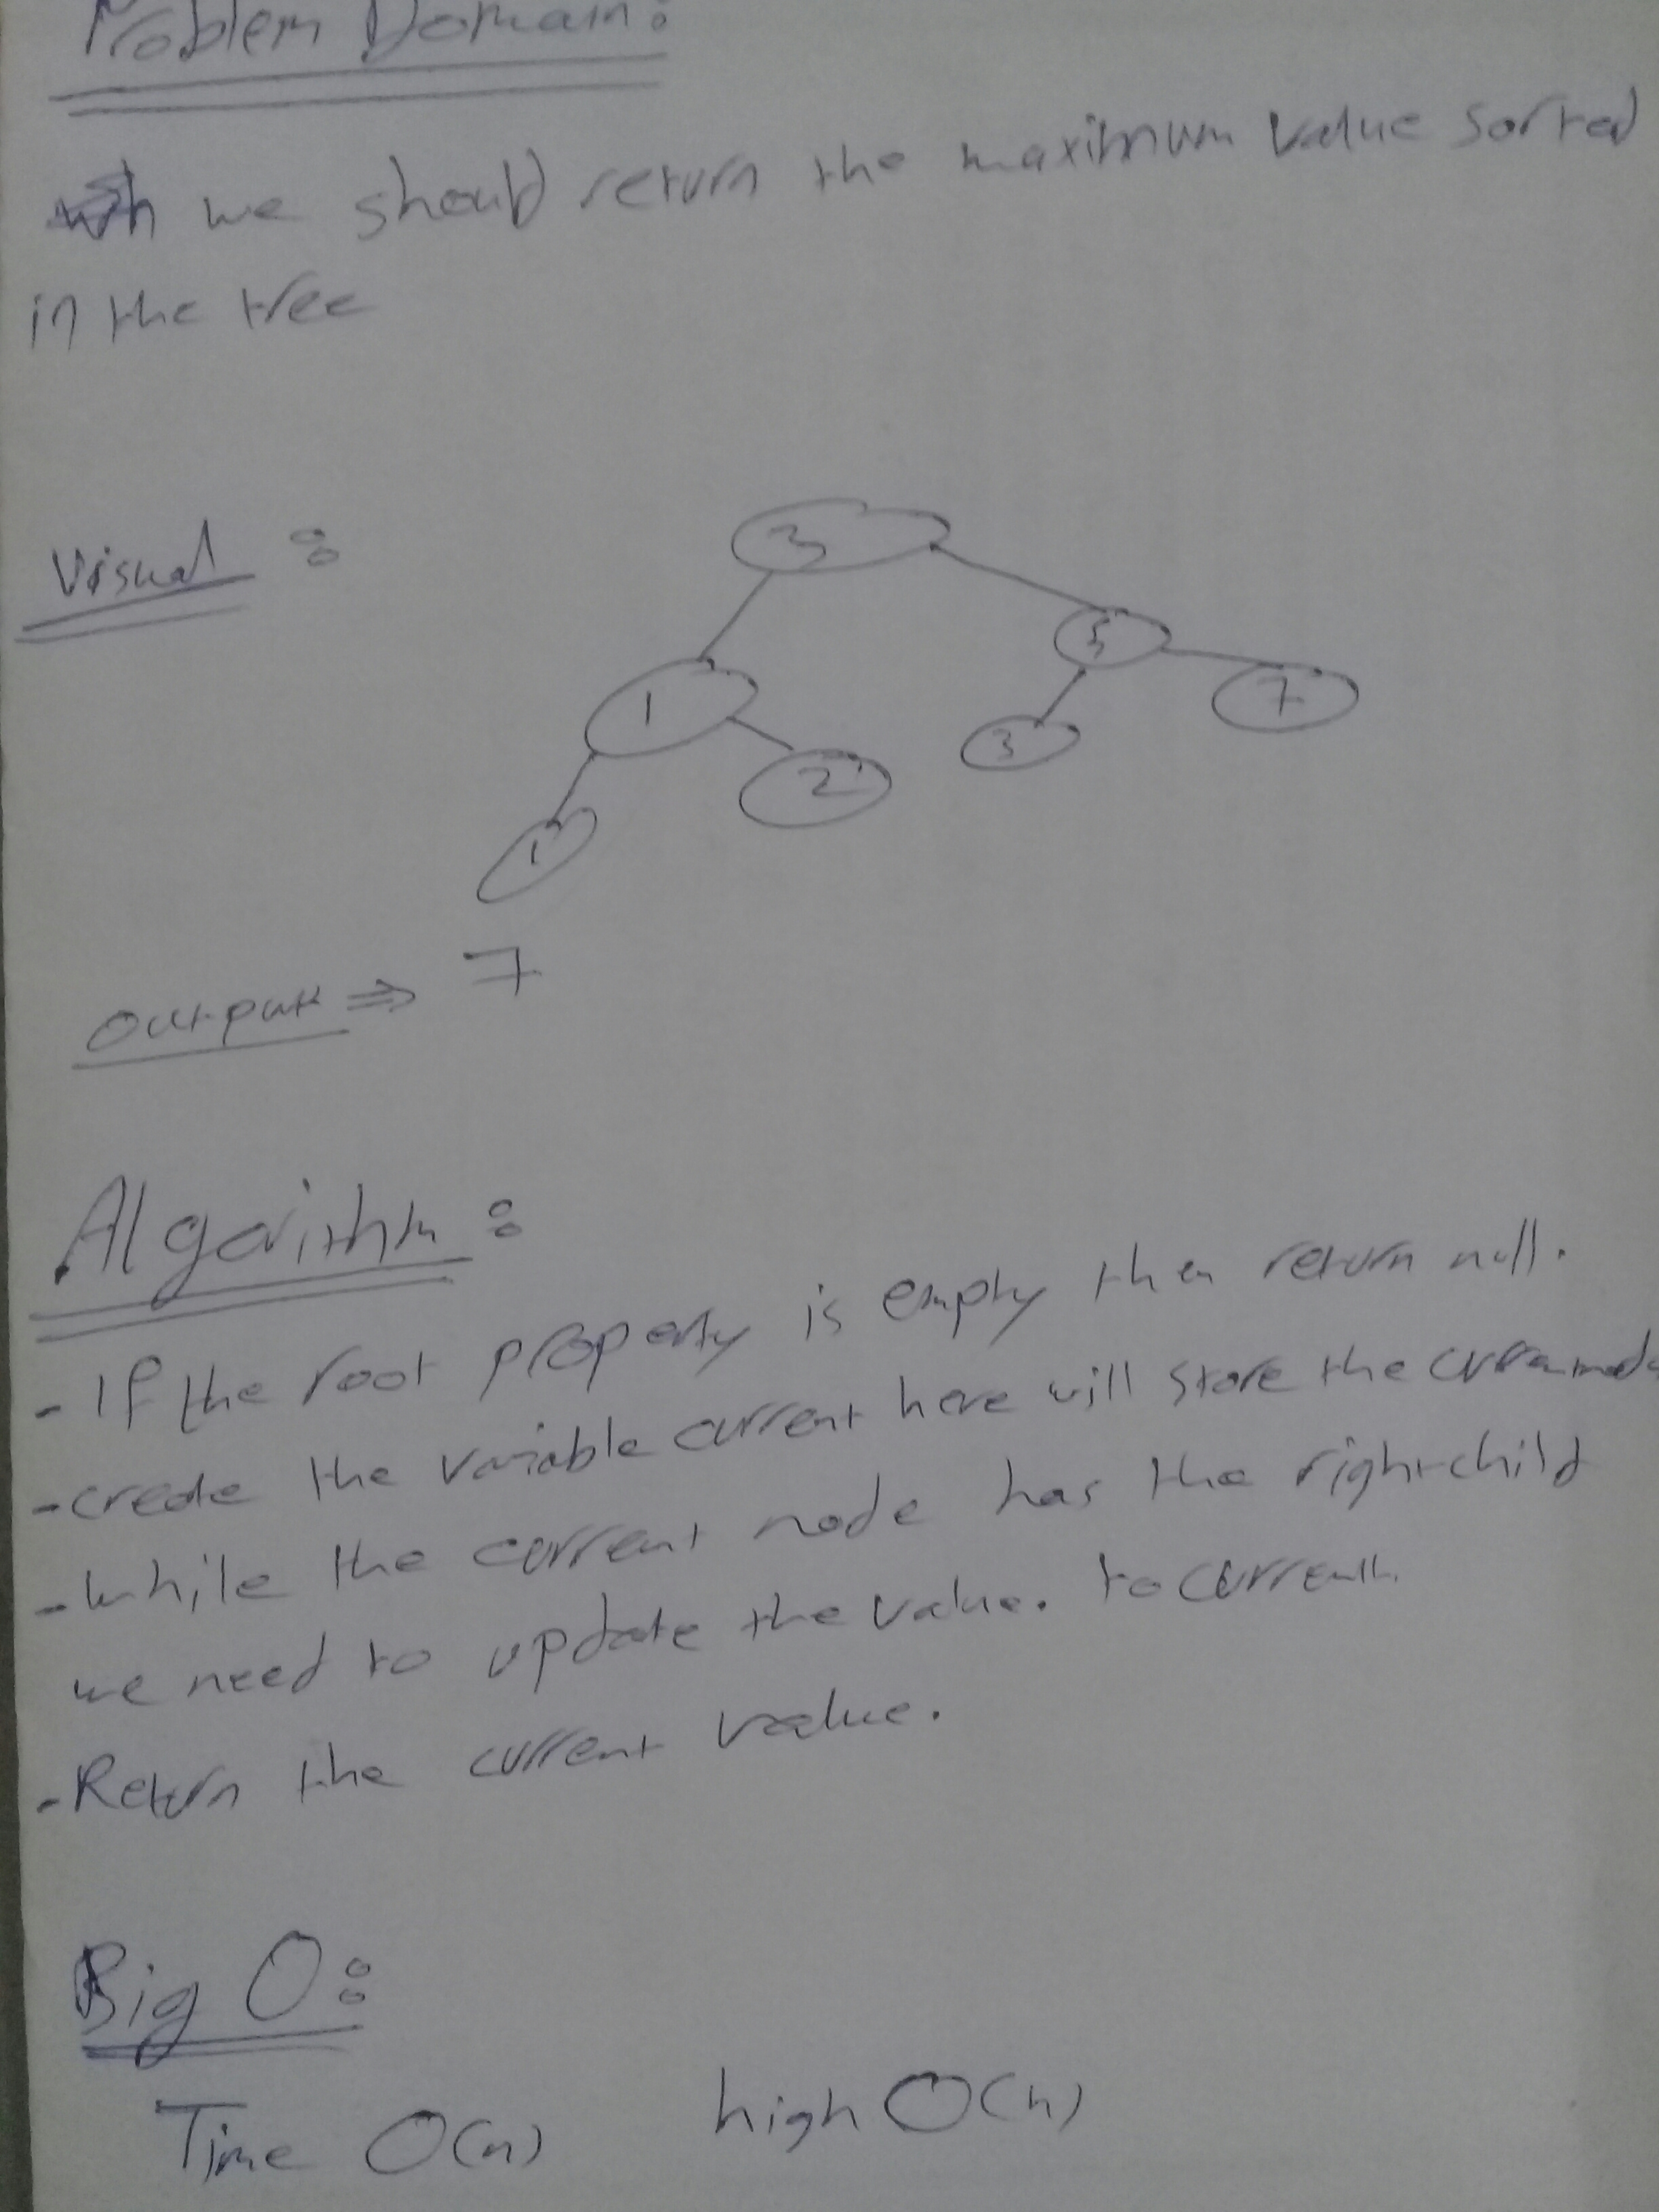 Problem Domain:
we should return the maximum value sorted
in the tree
Visual :
3
5
1
7
3
2
1
output ⇒ 7
Algorithm :
- If the root property is empty then return null.
- create the variable current here will store the
- while the current node has the right child
we need to update the value. to current.
- Return the current value.
Big O:
Time O(n) high O(h)